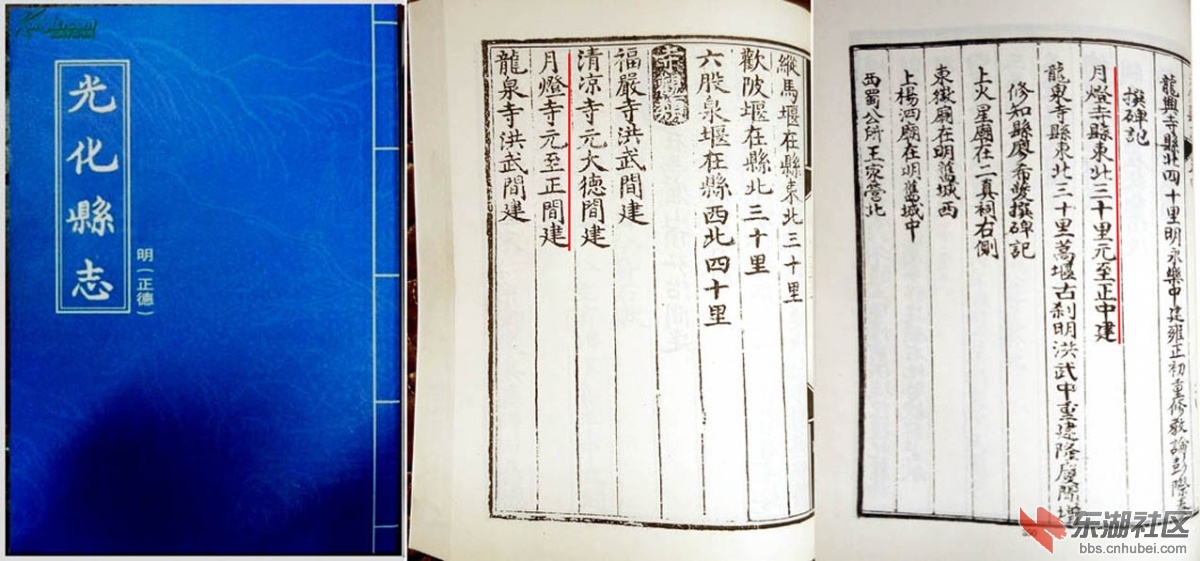 光化縣志
明（正德）
縱馬堰在縣東北三十里
歡陂堰在縣北三十里
六股泉堰在縣西北四十里
福嚴寺洪武間建
清凉寺元大德間建
月燈寺元至正間建
龍泉寺洪武間建
龍興寺縣北四十里明永樂中建雍正初重修教諭彭際
撰碑記
月燈寺縣東北三十里元至正中建
龍東寺縣東北三十里萬堰古刹明洪武中重建隆慶間
修知縣廖希夔撰碑記
上火星廟在二真祠右側
東嶽廟在明舊城西
上楊泗廟在明舊城中
西蜀公所王家營北
东湖社区
bbs.cnhubei.com